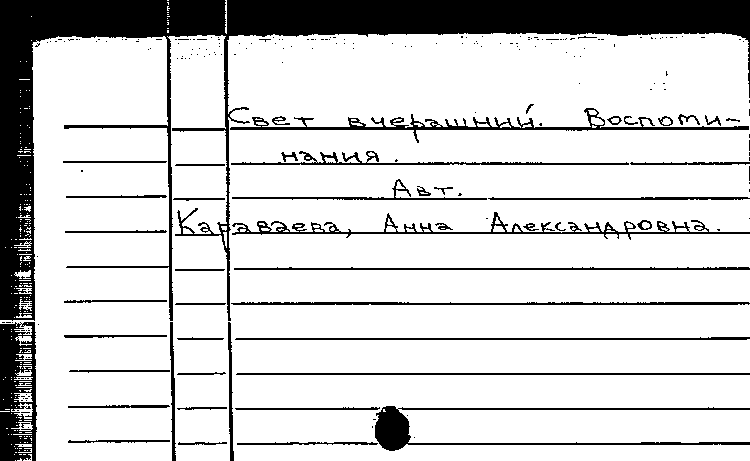 Свет вчерашний. Воспоми-
нания.
Авт.
Караваева, Анна Александровна.